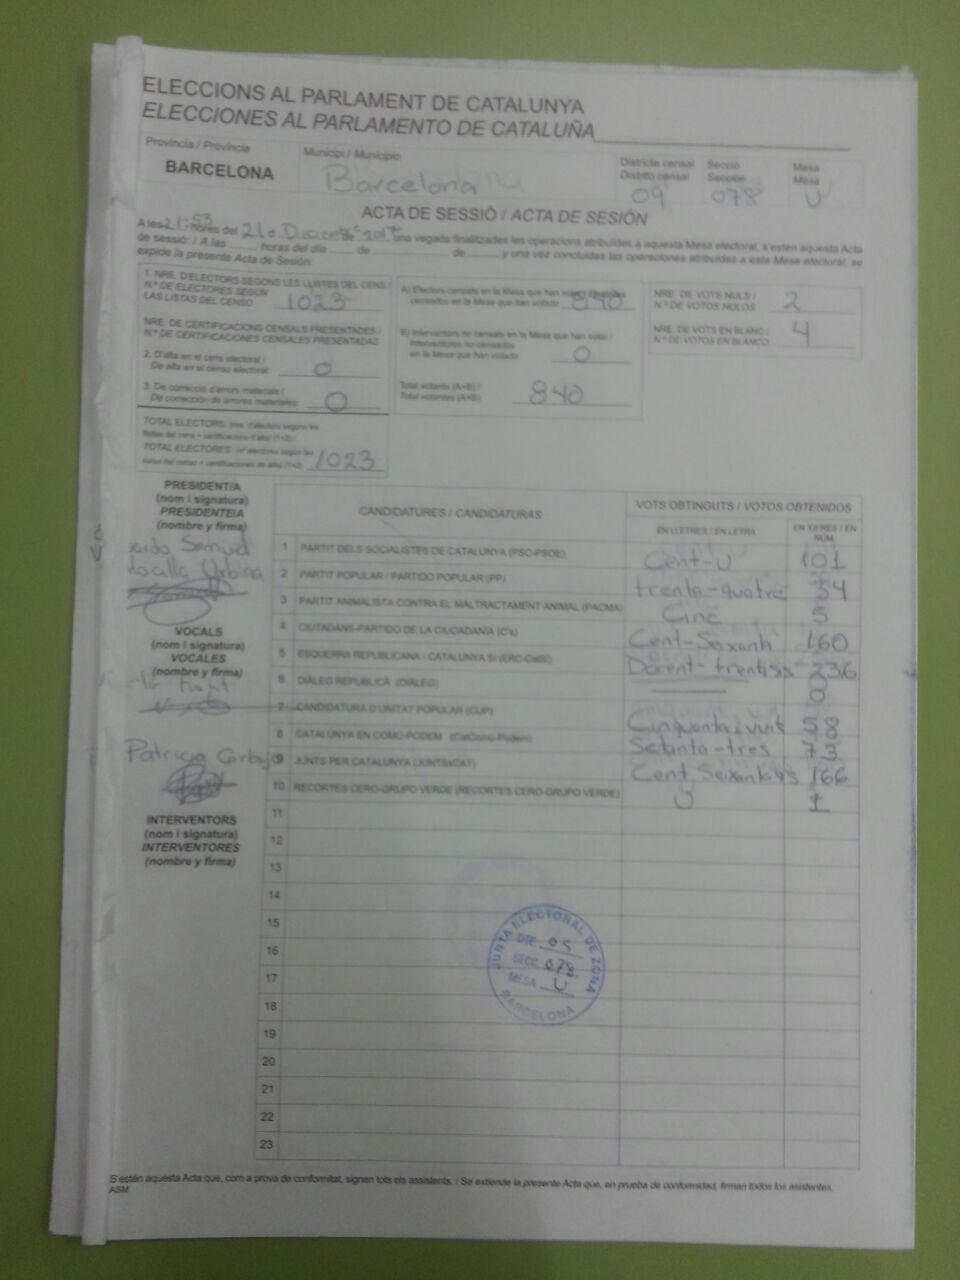 ELECCIONS AL PARLAMENT DE CATALUNYA
ELECCIONES AL PARLAMENTO DE CATALUÑA
Província / Provincia
BARCELONA
Municipi / Municipio
Barcelona
Districte censal
Distrito censal
09
Secció
Sección
078
Mesa
Mesa
U
ACTA DE SESSIÓ / ACTA DE SESIÓN
A les 21:53 hores del 21 d Diciembre de 2017 una vegada finalitzades les operacions atribuïdes a aquesta Mesa electoral, s'estén aquesta Acta
de sessió: / A las ____ horas del día ____ de ____ de ____ y una vez concluidas las operaciones atribuidas a esta Mesa electoral, se
expide la presente Acta de Sesión:
1. NRE. D'ELECTORS SEGONS LES LLISTES DEL CENS /
N.º DE ELECTORES SEGÚN
LAS LISTAS DEL CENSO 1023
NRE. DE CERTIFICACIONS CENSALS PRESENTADES /
N.º DE CERTIFICACIONES CENSALES PRESENTADAS
2. D'alta en el cens electoral /
De alta en el censo electoral: 0
3. De correcció d'errors materials /
De corrección de errores materiales: 0
TOTAL ELECTORS: (nre. d'electors segons les
llistes del cens + certificacions d'alta) (1+2) /
TOTAL ELECTORES: (nº electores según las
listas del censo + certificaciones de alta) (1+2) 1023
A) Electors censats en la Mesa que han votat /
censados en la Mesa que han votado 840
B) Interventors no censats en la Mesa que han votat /
Interventores no censados
en la Mesa que han votado 0
Total votants (A+B) /
Total votantes (A+B) 840
NRE. DE VOTS NULS /
N.º DE VOTOS NULOS 2
NRE. DE VOTS EN BLANC /
N.º DE VOTOS EN BLANCO 4
PRESIDENT/A
(nom i signatura)
PRESIDENTE/A
(nombre y firma)
Samuel
Urbina
VOCALS
(nom i signatura)
VOCALES
(nombre y firma)
Patricia
INTERVENTORS
(nom i signatura)
INTERVENTORES
(nombre y firma)
CANDIDATURES / CANDIDATURAS
VOTS OBTINGUTS / VOTOS OBTENIDOS
EN LLETRES / EN LETRA
EN XIFRES / EN NÚM.
1 PARTIT DELS SOCIALISTES DE CATALUNYA (PSC-PSOE) Cent-U 101
2 PARTIT POPULAR / PARTIDO POPULAR (PP) trenta-quatre 34
3 PARTIT ANIMALISTA CONTRA EL MALTRACTAMENT ANIMAL (PACMA) Cinc 5
4 CIUTADANS-PARTIDO DE LA CIUDADANÍA (C's) Cent-Seixanta 160
5 ESQUERRA REPUBLICANA - CATALUNYA SÍ (ERC-CatSí) Docent-trentisis 236
6 DIÀLEG REPÚBLICA (DIÀLEG) 0
7 CANDIDATURA D'UNITAT POPULAR (CUP) Cinquanta i vuit 58
8 CATALUNYA EN COMÚ-PODEM (CatComú-Podem) Setanta-tres 73
9 JUNTS PER CATALUNYA (JUNTSxCAT) Cent Seixantisis 166
10 RECORTES CERO-GRUPO VERDE (RECORTES CERO-GRUPO VERDE) U 1
11
12
13
14
15
16
17
18
19
20
21
22
23
JUNTA ELECTORAL DE ZONA
DTE.
SECC. 078
MESA U
BARCELONA
S'estén aquesta Acta que, com a prova de conformitat, signen tots els assistents. / Se extiende la presente Acta que, en prueba de conformidad, firman todos los asistentes.
ASM